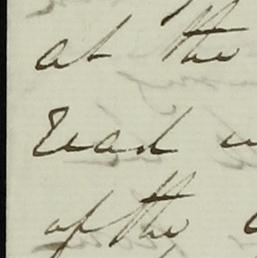 at the
read
of the